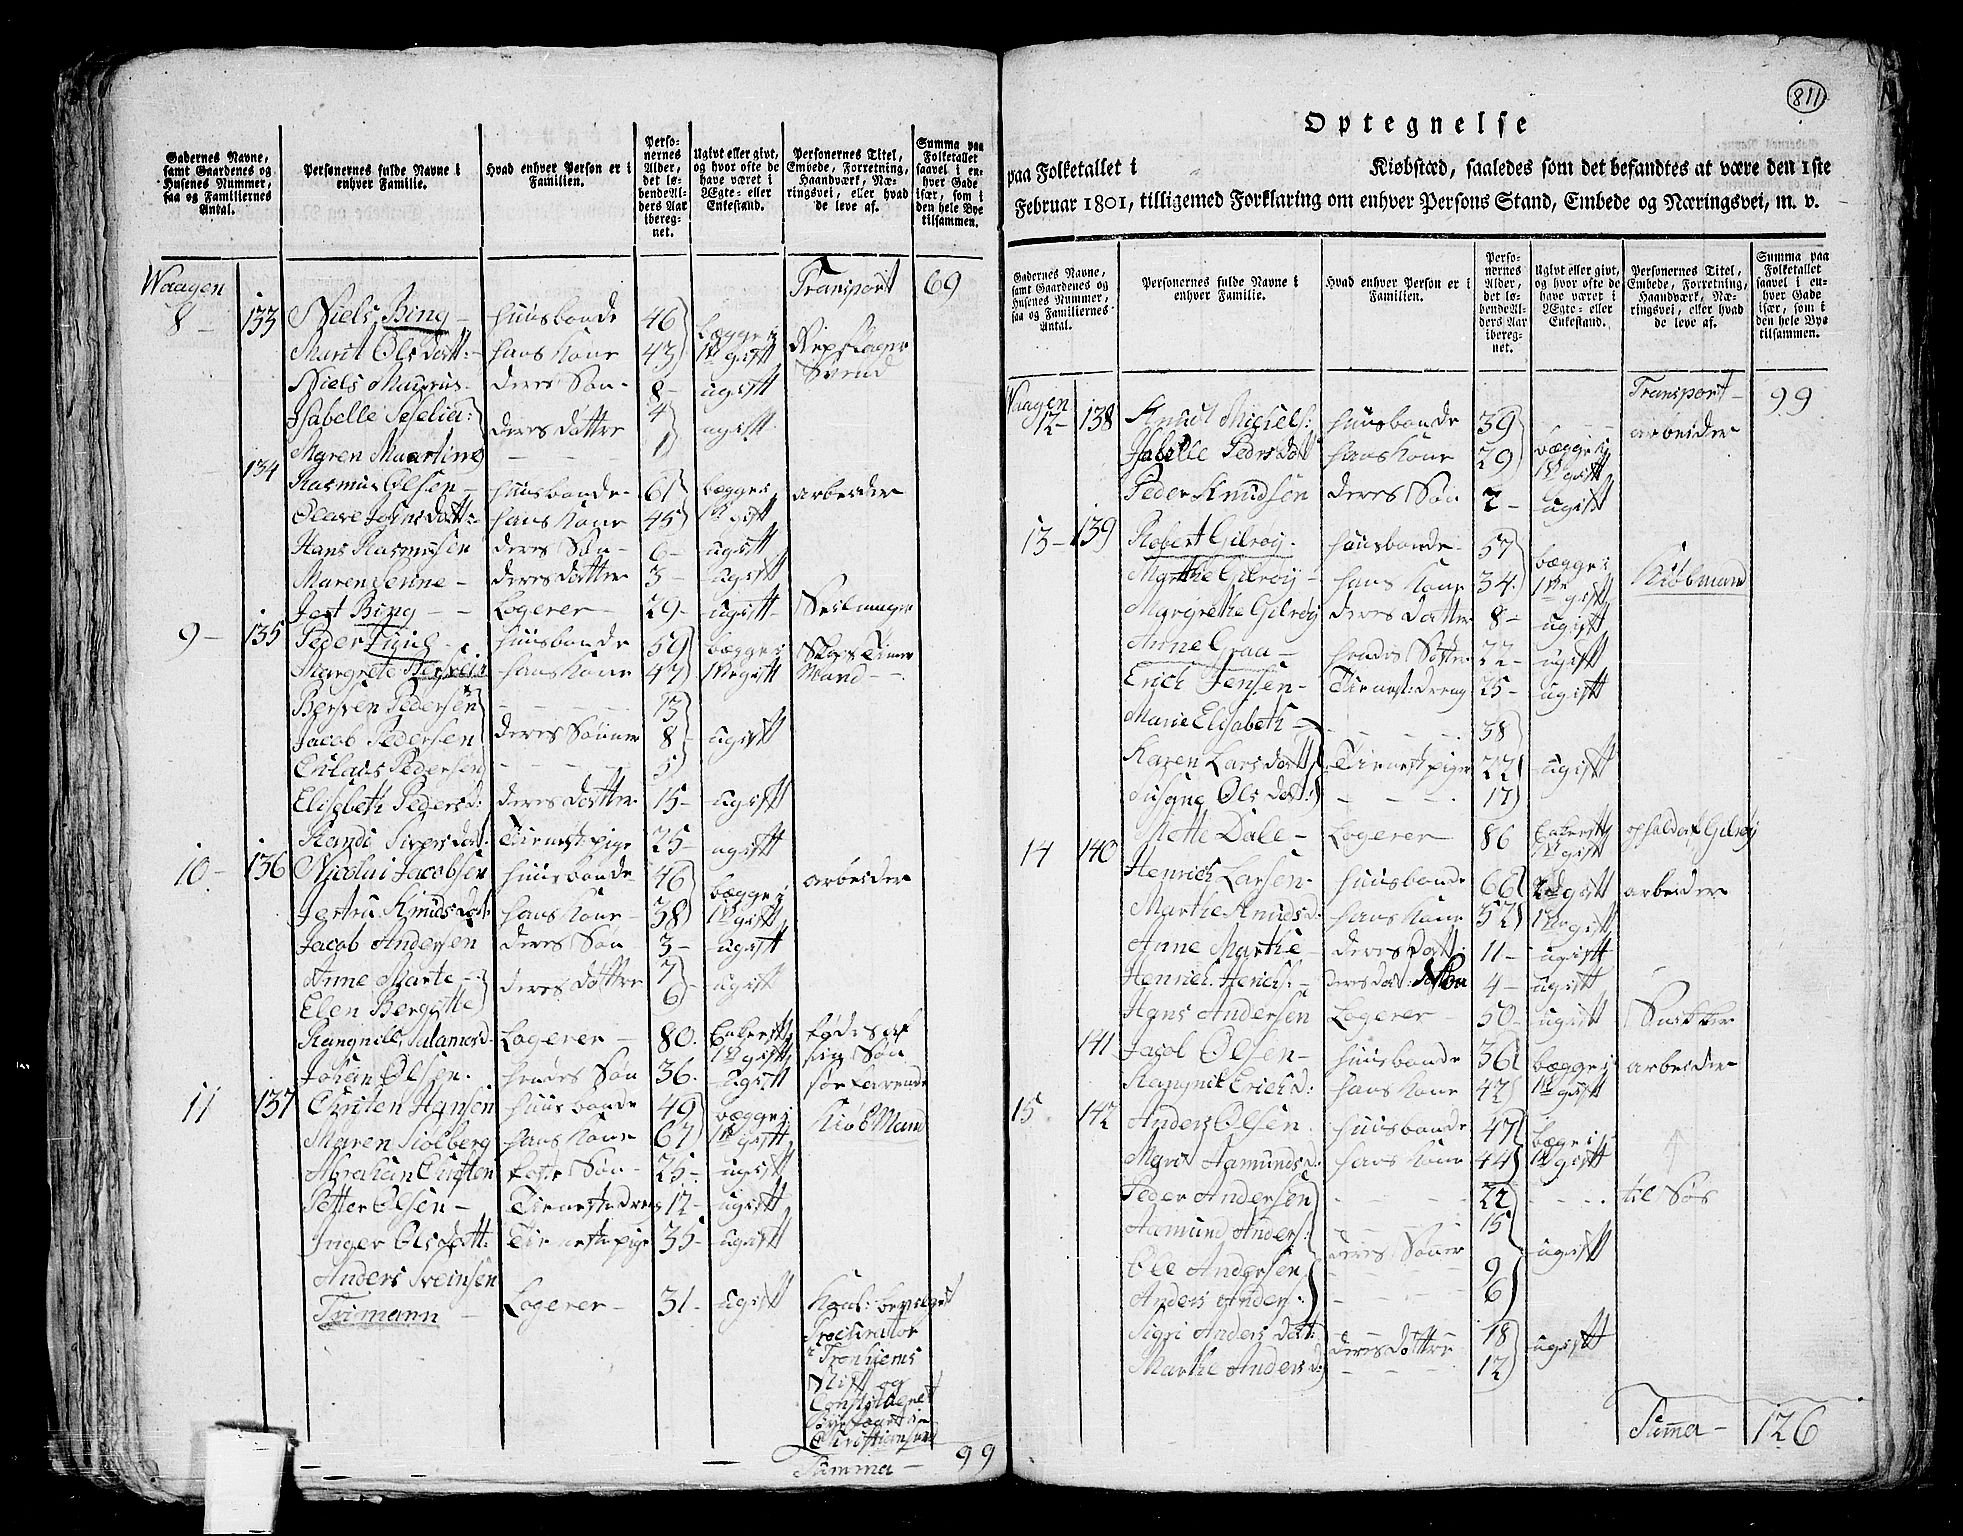 811
Gadernes Navne, samt Gaardenes og Husenes Nummer, saa og Familiernes Antal.
Personernes fulde Navne i enhver Familie.
Hvad enhver Person er i Familien.
Personernes Alder, det løbende Alders Aar iberegnet.
Ugivt eller givt, og hvor ofte de have været i Ægte- eller Enkestand.
Personernes Titel, Embede, Forretning, Haandværk, Næringsvej, eller hvad de leve af.
Summa paa Folketallet saavel i enhver Gade især, som i den hele Bye tilsammen.
Waagen Transport 69
8 – 133 Niels Bing – huusbonde 46 begge i Repslager
Marit Olsdatt:– hans Kone 43 1te gift Svend
Niels Maurus – deres Søn – 8 – ugift
Isabelle Seselia: deres døttre 4 ugift
Maren Maartine – – – 1
134 Rasmus Olsen – huusbonde – 61 begge i arbeider
hans Kone 45 1te gift
Hans Rasmusen deres Søn – 6 – ugift
Maren Senne – deres datter 3 – ugift
Bing – – Logerer – 29 – ugift – Seilmager
9 – 135 Peder huusbonde 59 begge i
Margrete hans Kone 47 1te gift Mand – –
Bersven Pedersen – – – 13
Jacob Pedersen deres Sønner 8 – ugift
Pedersen – – – 5
Elisebeth Pedersd: deres datter 15 – ugift
Randi Tienestpige 25 – ugift
10 – 136 Nicolai Jacobsen huusbonde – 46 begge i arbeider
Jertru Knudsdat: hans Kone – 38 1te gift
Jacob Andersen deres Søn 3 – ugift
Anne Marte – deres døttre 7 ugift
Elen Bergitte 6
Rangnild Logerer – 80. Enkest: fødes af
1te gift sin Søn
Johan Olsen. hendes Søn 36. ugift søefarende
11 137 Christen Hansen huusbonde 49 begge i Kiøbmand
Maren Siølberg hans Kone 67 1te gift
Abraham Christen Søn – 25 – ugift
Petter Olsen – Tienestedreng 12 – ugift
Inger Olsdatt: Tienestepige 35 – ugift
Anders Sveinsen
Trimann – Logerer – 31 – ugift
Procurator
i Tronhiems
Stift og
Constitueret
Byefoget i
Christiansund
Summa – 99
Optegnelse
paa Folketallet i Kiøbstæd, saaledes som det befandtes at være den 1ste
Februar 1801, tilligemed Forklaring om enhver Persons Stand, Embede og Næringsvei, m. v.
Gadernes Navne, samt Gaardenes og Husenes Nummer, saa og Familiernes Antal.
Personernes fulde Navne i enhver Familie.
Hvad enhver Person er i Familien.
Personernes Alder, det løbende Alders Aar iberegnet.
Ugivt eller givt, og hvor ofte de have været i Ægte- eller Enkestand.
Personernes Titel, Embede, Forretning, Haandværk, Næringsvej, eller hvad de leve af.
Summa paa Folketallet saavel i enhver Gade især, som i den hele Bye tilsammen.
Waagen Transport – 99
12 – 138 Knud Michels: huusbonde 39 arbeider
Isabelle Pedersdatt hans Kone 29 begge i 1te gift
Peder Knudsen deres Søn 2 – ugift
13 – 139 Robert Gilroy – huusbonde – 57 begge i
Marthe Gilroy – hans Kone 34. 1te gift Kiøbmand
Margrethe Gilroy deres datter 8 – ugift
Anne Graa – hendes Søster 22 – ugift
Erich Jensen – Tienest:dreng 25 – ugift
Marie Elisabeth – – – – 38
Karen Larsdatt: Tienestpiger 22 ugift
Olsdat: – – – 17
Mette Dale – Logerer – 86 Enkest: opholdes af Gilroy
1te gift
14 140 Henrich Larsen – huusbonde 66 2de gift arbeider
Marthe Knudsd: hans Kone 52 1te gift
Anne Marthe deres datt: 11 – ugift
Henrich Henrichs: – deres Søn 4 – ugift
Hans Andersen Logerer – 50 – ugift
141 Jacob Olsen – huusbonde 36 begge i arbeider
Erichsd: hans Kone 42 1te gift
15 142 Anders Olsen. huusbonde 47 begge i
Marit Aamundsd: hans Kone 44 1te gift
Peder Andersen – – – 22 – – – til Søs
Aamund Anders: – – – 15
deres Sønner ugift
Ole Andersen – – – 9
Anders Anders: – – – 6
Sigri Andersdat: – – – 18
deres døttre ugift
Marthe Andersd: – – 12
Summa – 126